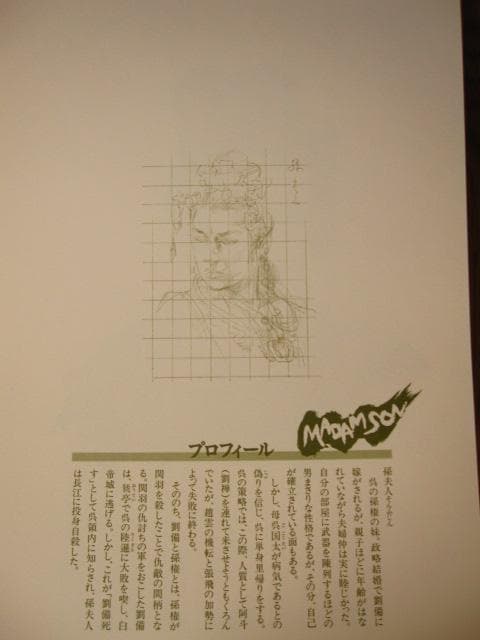 孫夫人
MADAM SON
プロフィール
孫夫人そんふじん
呉の孫権の妹。政略結婚で劉備に
嫁がされるが、親子ほどに年齢がはな
れていながら夫婦仲は実に睦じかった。
自分の部屋に武器を陳列するほどの
男まさりな性格であるが、その分、自己
が確立されている面もある。
しかし、母呉国太が病気であるとの
偽りを信じ、呉に単身里帰りをする。
呉の策略では、この際、人質として阿斗
(劉禅)を連れて来させようともくろん
でいたが、趙雲の機転と張飛の加勢に
よって失敗に終わる。
そののち、劉備と孫権とは、孫権が
関羽を殺したことで仇敵の間柄とな
る。関羽の仇討ちの軍をおこした劉備
は、猇亭で呉の陸遜に大敗を喫し、白
帝城に逃げる。しかし、これが「劉備死
す」として呉領内に知らされ、孫夫人
は長江に投身自殺した。